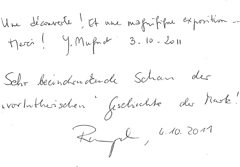 Une découverte ! Et une magnifique exposition –
Merci ! Y. 3.10-2011
Sehr beeindruckende Schau der
vorlutherischen Geschichte der Mark!
4.10.2011